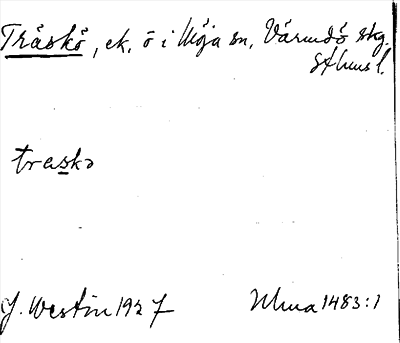 Träskö, ek. ö i Möja sn, Värmdö skg.
Sthms l.
trasko
J. Westin 1927 Ulma 1483:1